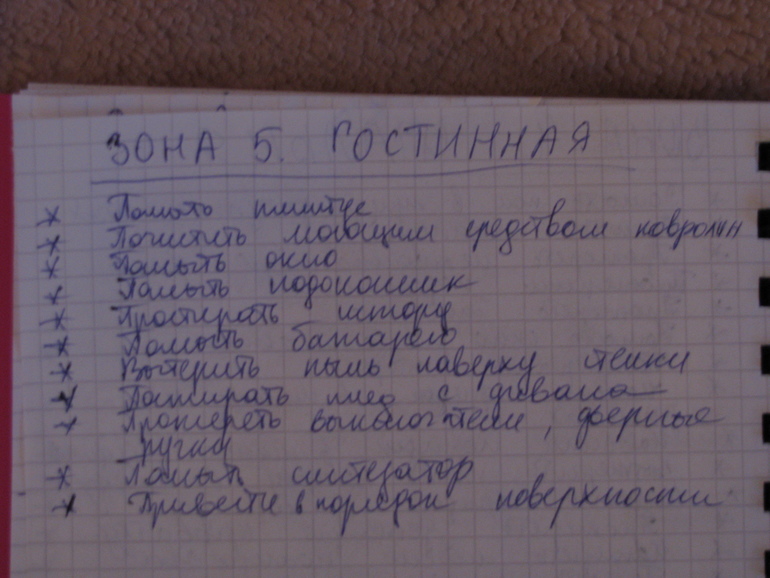 ЗОНА 5. ГОСТИННАЯ
Помыть плинтус
Почистить моющим средством ковролин
Помыть окно
Помыть подоконник
Простирать штору
Помыть батарею
Вытереть пыль наверху стенки
Постирать плед с дивана
Протереть выключатели, дверные
ручки
Помыть
Привести в порядок поверхности